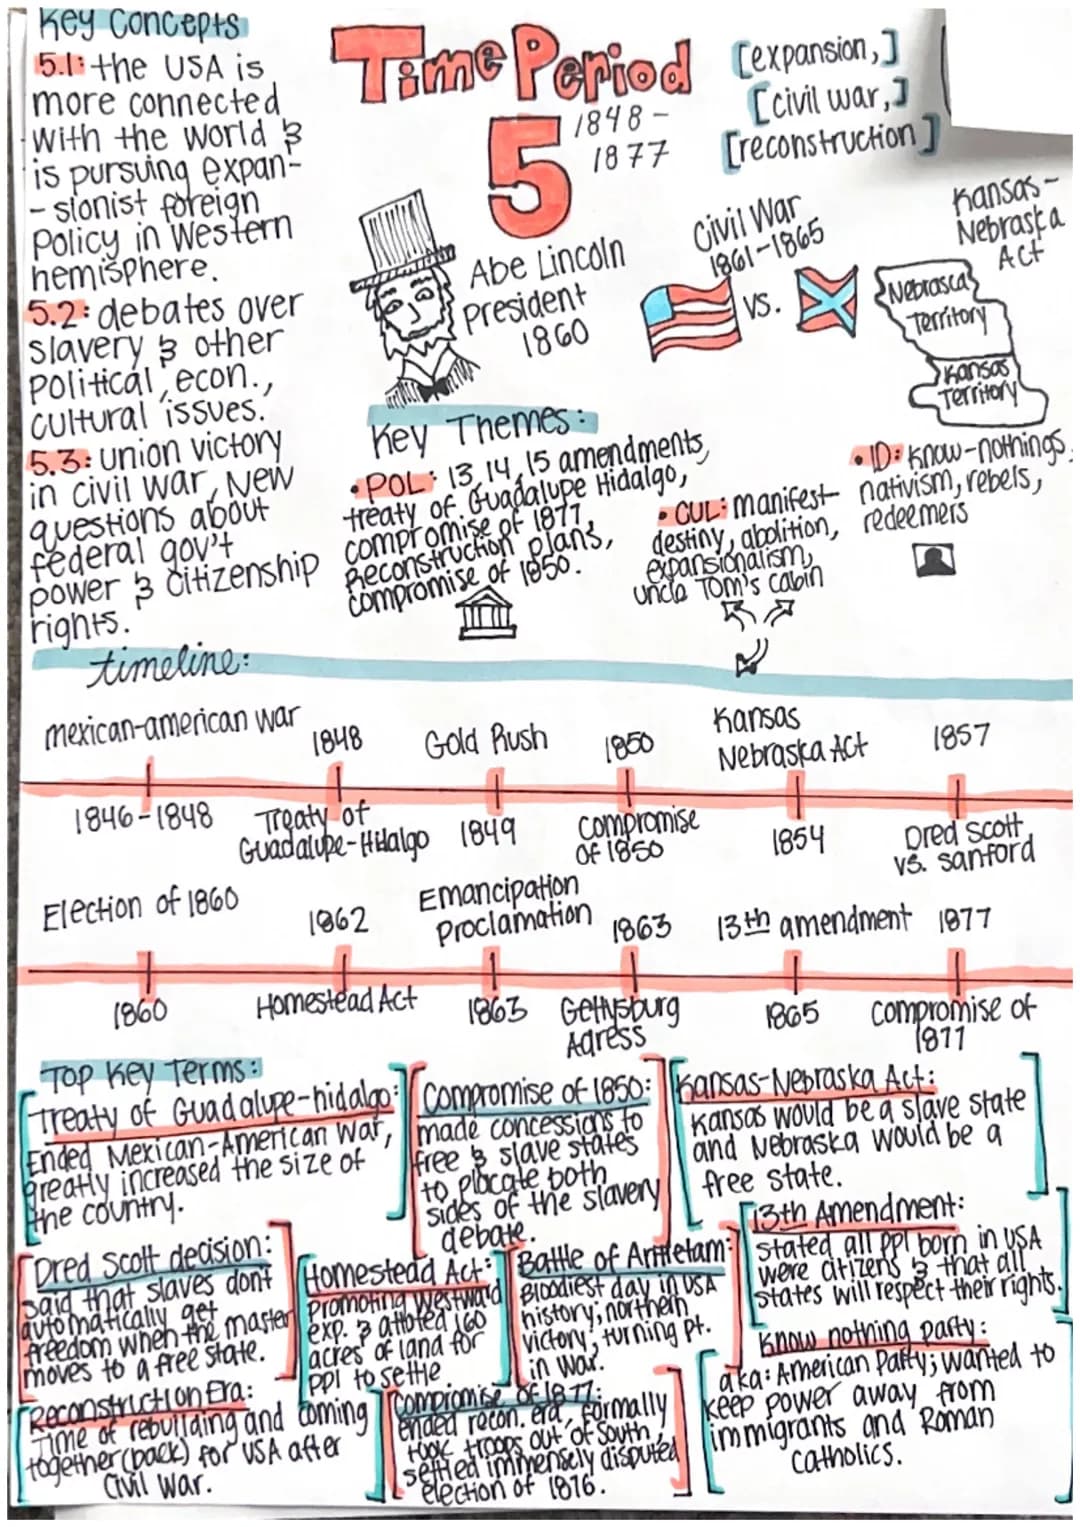 Key Concepts
5.1: the USA is
more connected
with the world &
is pursuing expan-
- sionist foreign
policy in Western
hemisphere.
5.2: debates over
slavery & other
political, econ.,
cultural issues.
5.3: union victory
in civil war, New
questions about
federal gov't
power & citizenship
rights.
Time Period
5
1848 -
1877
[expansion,]
[civil war,]
[reconstruction]
Abe Lincoln
president
1860
Civil War
1861-1865
VS.
Kansas-
Nebraska
Act
Nebrasca
Territory
Kansas
Territory
Key Themes:
• POL: 13, 14, 15 amendments,
treaty of Guadalupe Hidalgo,
compromise of 1877,
Reconstruction plans,
compromise of 1850.
• CUL: manifest
destiny, abolition,
expansionalism,
uncle Tom's cabin
• ID: know-nothings,
nativism, rebels,
redeemers
timeline:
mexican-american war
1848
Gold Rush
1850
Kansas
Nebraska Act
1857
1846-1848
Treaty of
Guadalupe-Hidalgo
1849
Compromise
of 1850
1854
Dred Scott
vs. sanford
Election of 1860
1862
Emancipation
Proclamation
1863
13th amendment
1877
1860
Homestead Act
1863
Gettysburg
Adress
1865
compromise of
1877
Top Key Terms:
Treaty of Guadalupe-hidalgo:
Ended Mexican-American War,
greatly increased the size of
the country.
Compromise of 1850:
made concessions to
free & slave states
to placate both
sides of the slavery
debate.
Kansas-Nebraska Act:
Kansas would be a slave state
and Nebraska would be a
free state.
Dred Scott decision:
said that slaves dont
automatically get
freedom when the master
moves to a free state.
Homestead Act:
promoting westward
exp. & alloted 160
acres of land for
ppl to settle
Battle of Antietam:
Bloodiest day in USA
history; northern
victory; turning pt.
in war.
13th Amendment:
stated all ppl born in USA
were citizens & that all
states will respect their rights.
Reconstruction Era:
Time of rebuilding and coming
together (back) for USA after
Civil War.
Compromise of 1877:
ended recon. era, formally
took troops out of South,
settled immensely disputed
election of 1876.
Know nothing party:
aka: American Party; wanted to
keep power away from
immigrants and Roman
Catholics.